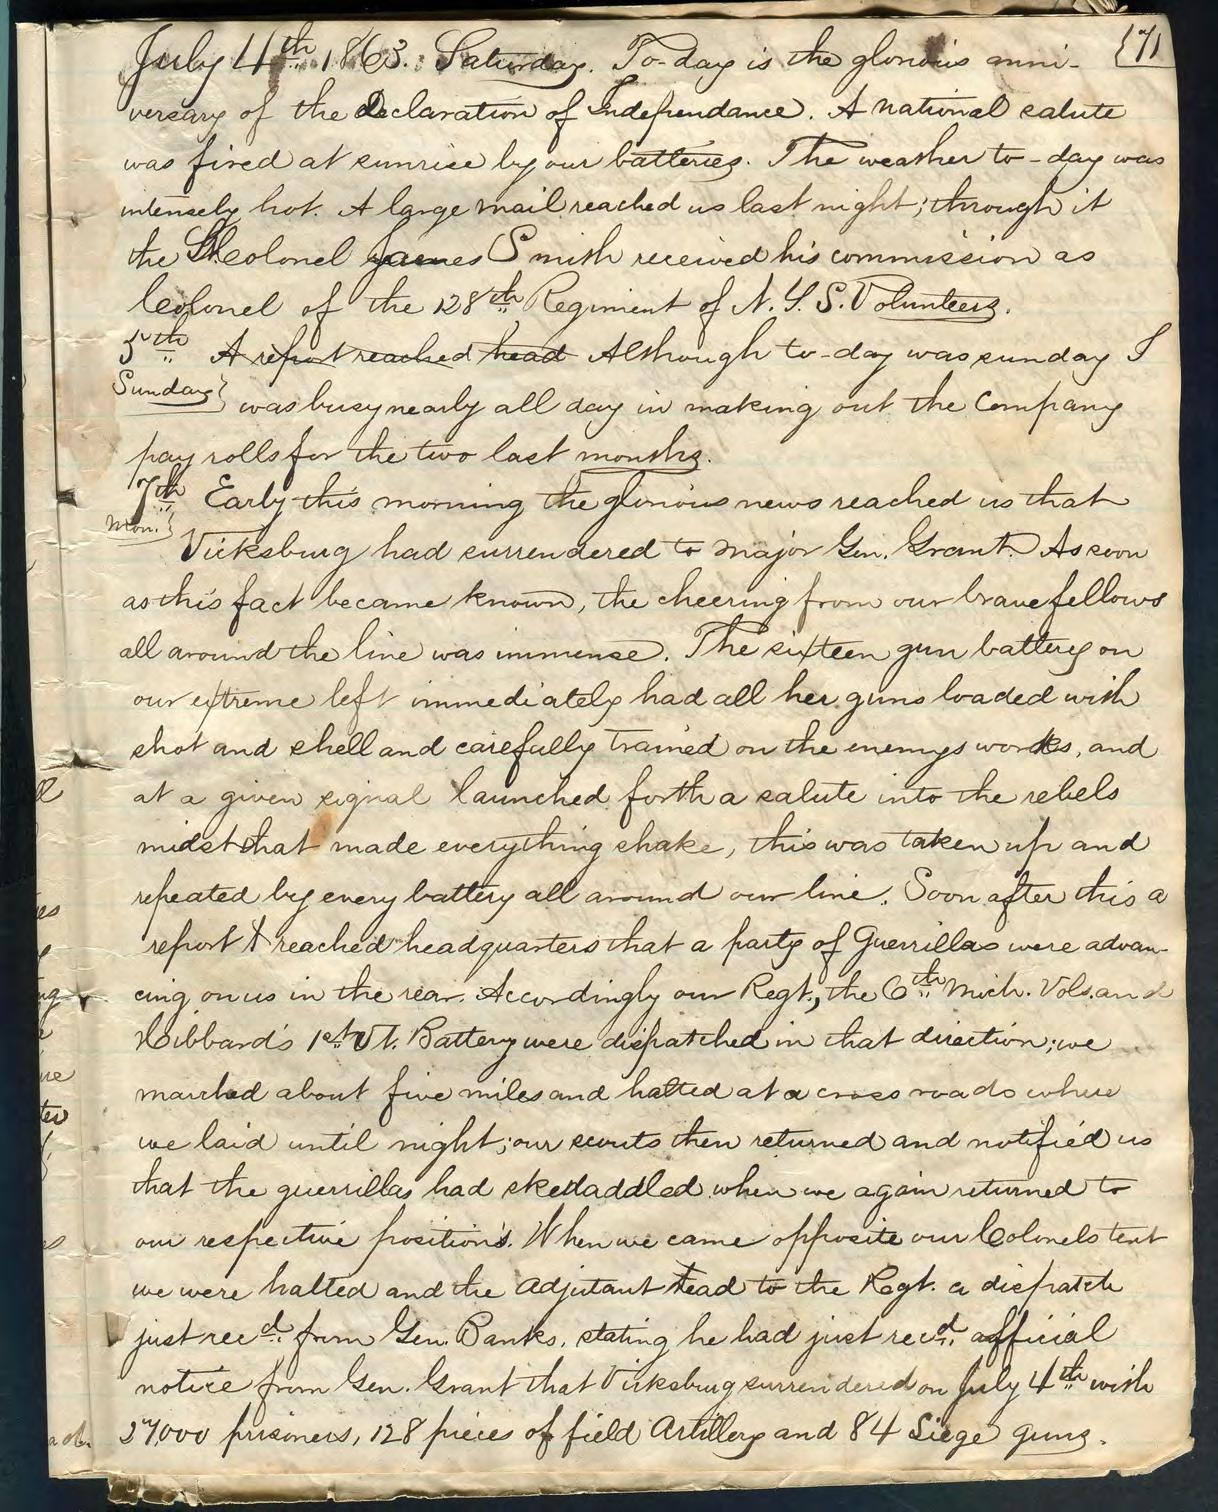 July 4th 1863. Saturday. To-day is the glorious anni- {71
versary of the declaration of Independance. A national salute
was fired at sunrise by our batteries. The weather to-day was
intensely hot. A large mail reached us last night; through it
the Lt Colonel James Smith received his commission as
Colonel of the 128th Regiment of N.Y.S. Volunteers.
5th A report reached head Although to-day was sunday I
Sunday} was busy nearly all day in making out the Company
pay rolls for the two last months.
7th Early this morning the glorious news reached us that
Mon.} Vicksburg had surrendered to major Gen. Grant. As soon
as this fact became known, the cheering from our brave fellows
all around the line was immense. The sixteen gun battery on
our extreme left immediately had all her guns loaded with
shot and shell and carefully trained on the enemys works, and
at a given signal launched forth a salute into the rebels
midst that made everything shake, this was taken up and
repeated by every battery all around our line. Soon after this a
report reached headquarters that a party of Guerrillas were advan-
cing on us in the rear. Accordingly our Regt., the 6th Mich. Vols. and
Hibbard's 1st Vt. Battery were dispatched in that direction; we
marched about five miles and halted at a cross roads where
we laid until night; our scouts then returned and notified us
that the guerrillas had skedaddled when we again returned to
our respective positions. When we came opposite our Colonels tent
we were halted and the Adjutant read to the Regt. a dispatch
just recd. from Gen. Banks, stating he had just recd. official
notice from Gen. Grant that Vicksburg surrendered on July 4th with
27,000 prisoners, 128 pieces of field Artillery and 84 Siege guns.